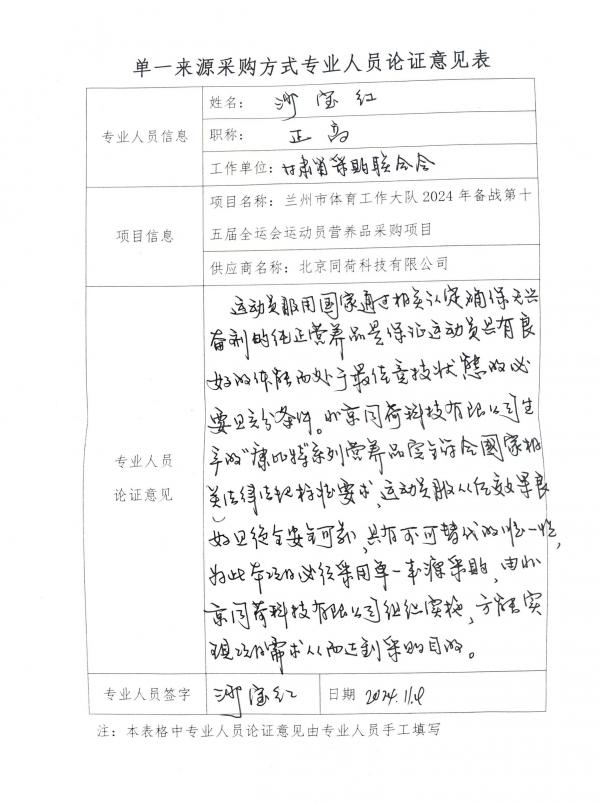 单一来源采购方式专业人员论证意见表
专业人员信息
姓名： 沙宝红
职称： 正高
工作单位：甘肃省采购联合会
项目信息
项目名称：兰州市体育工作大队2024年备战第十
五届全运会运动员营养品采购项目
供应商名称：北京同荷科技有限公司
专业人员
论证意见
运动员服用国家通过相关认定确保无兴
奋剂的纯正营养品是保证运动员具有良
好的体能而处于最佳竞技状态的必
要且充分条件。北京同荷科技有限公司生
产的"康比特"系列营养品完全符合国家相
关法律法规标准要求，运动员服从后效果良
好且绝全安全可靠，具有不可替代的唯一性，
为此本项目必须采用单一来源采购，由北
京同荷科技有限公司组织实施，方能实
现项目需求从而达到采购目的。
专业人员签字 沙宝红 日期 2024.11.4
注：本表格中专业人员论证意见由专业人员手工填写